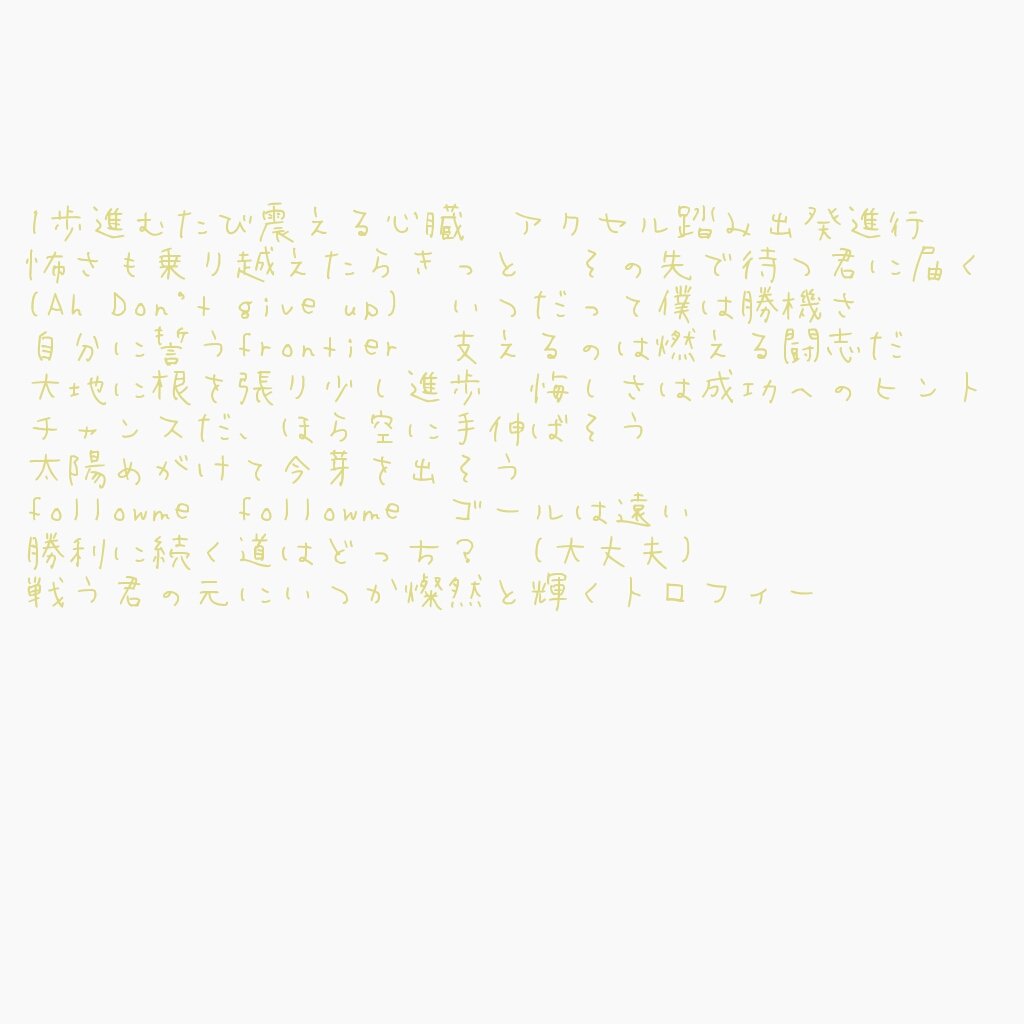 1歩進むたび震える心臓　アクセル踏み出発進行
怖さも乗り越えたらきっと　その先で待つ君に届く
(Ah Don't give up)　いつだって僕は勝機さ
自分に誓うfrontier　支えるのは燃える闘志だ
大地に根を張り少し進歩　悔しさは成功へのヒント
チャンスだ、ほら空に手伸ばそう
太陽めがけて今芽を出そう
followme　followme　ゴールは遠い
勝利に続く道はどっち?　(大丈夫)
戦う君の元にいつか燦然と輝くトロフィー